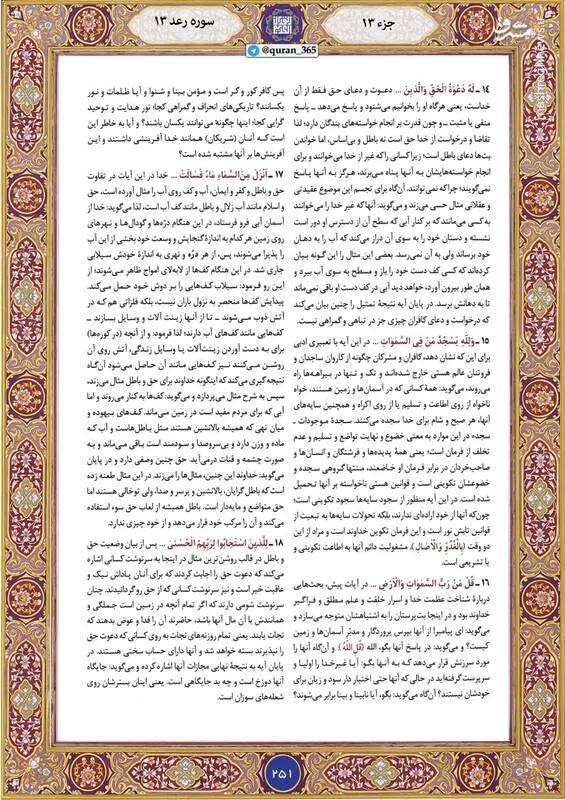 جزء ۱۳
سوره رعد ۱۳
@quran_365
مشرق
۱۴ـ لَهُ دَعْوَةُ الْحَقِّ وَالَّذِینَ ... دعوت و دعای حق فقط از آن
خداست، یعنی هرگاه او را بخوانیم می‌شنود و پاسخ می‌دهد ـ پاسخ
منفی یا مثبت ـ و چون قدرت بر انجام خواسته‌های بندگان دارد؛ لذا
تقاضا و درخواست از خدا حق است نه باطل و بی‌اساس، اما خواندن
بت‌ها دعای باطل است؛ زیرا کسانی را که غیر از خدا می‌خوانند و برای
انجام خواسته‌هایشان به آنها پناه می‌برند، هرگز به آنها پاسخ
نمی‌گویند؛ چرا که نمی توانند. آن‌گاه برای تجسم این موضوع عقیدتی
و عقلانی مثال حسی می‌زند و می‌گوید: آنها که غیر خدا را می‌خوانند
به کسی می‌مانند که بر کنار آبی که سطح آن از دسترس او دور است
نشسته و دستان خود را به سوی آن دراز می‌کند که آب را به دهان
خود برساند ولی به آن نمی‌رسد. بعضی این مثال را این گونه بیان
کرده‌اند که کسی کف دست خود را باز و مسطح به سوی آب ببرد و
همان طور بیرون آورد، خواهد دید آبی در کف دست او باقی نمی‌ماند
تا به دهانش برسد. در پایان آیه به‌نتیجۀ تمثیل را چنین بیان می‌کند
که درخواست و دعای کافران چیزی جز در تباهی و گمراهی نیست.
۱۵ـ وَلِلّٰهِ یَسْجُدُ مَنْ فِی السَّمٰوَاتِ ... در این آیه با تعبیری ادبی
برای این که نشان دهد، کافران و مشرکان چگونه از کاروان ساجدان و
فروتنان عالم هستی خارج شده‌اند و تک و تنها در بیراهه‌ها راه
می‌روند، می‌گوید: همۀ کسانی که در آسمان‌ها و زمین هستند، خواه
ناخواه از روی اطاعت و تسلیم یا از روی اکراه و همچنین سایه‌های
آنها، هر صبح و شام برای خدا سجده می‌کنند. سجدۀ موجودات ـ
سجده در این موارد به معنی خضوع و نهایت تواضع و تسلیم و عدم
تخلف از فرمان است؛ یعنی همۀ پدیده‌ها و فرشتگان و انسان‌ها و
صاحب‌خردان در برابر فرمان او خاضعند، منتها گروهی سجده و
خضوعشان تکوینی است و قوانین هستی ناخواسته بر آنها تحمیل
شده است. در این آیه منظور از سجود سایه‌ها سجود تکوینی است؛
چون‌که آنها از خود اراده‌ای ندارند، بلکه تحولات سایه‌ها به تبعیت از
قوانین تابش نور است و این فرمان تکوین خداوند است و مراد از این
دو وقت (بِالْغُدُوِّ وَ الْآصَالِ) مشغولیت دائم آنها به اطاعت تکوینی و
یا تشریعی است.
۱۶ـ قُلْ مَنْ رَبُّ السَّمٰوَاتِ وَالْاَرْضِ ... در آیات پیش، بحث‌هایی
دربارۀ شناخت عظمت خدا و اسرار خلقت و علم مطلق و فراگیر
خداوند بود و در اینجا بت‌پرستان را به اشتباهشان متوجه می‌سازد و
می‌گوید: ای پیامبر! از آنها بپرس پروردگار و مدبّر آسمان‌ها و زمین
کیست؟ و می‌گوید: در پاسخ آنها بگو، الله (قُلِ اللّٰهُ) و آن‌گاه آنها را
مورد سرزنش قرار می‌دهد که به آنها بگو: آیا غیرخدا را اولیا و
سرپرست گرفته‌اید در حالی که آنها حتی اختیار دار سود و زیان برای
خودشان نیستند؟ آن‌گاه می‌گوید: بگو، آیا نابینا و بینا برابر می‌شوند؟
پس کافر کور و کر است و مؤمن بینا و شنوا و آیا ظلمات و نور
یکسانند؟ تاریکی‌های انحراف و گمراهی کجا؛ نور هدایت و توحید
گرایی کجا؛ اینها چگونه می‌توانند یکسان باشند؟ و آیا به خاطر این
است که آنان (شریکان) همانند خدا آفرینشی داشتند و این
آفرینش‌ها بر آنها مشتبه شده است؟
۱۷ـ اَنْزَلَ مِنَ السَّمَاءِ مَاءً فَسَالَتْ ... خدا در این آیات در تفاوت
حق و باطل و کفر و ایمان، آب و کف روی آب را مثال آورده است، حق
و اسلام مانند آب زلال و باطل مانند کف آب است، لذا می‌گوید: خدا از
آسمان آبی فرو فرستاد، در این هنگام دژه‌ها و گودال‌ها و نهرهای
روی زمین هر کدام به اندازۀ گنجایش و وسعت خود بخشی از این آب
را پذیرا می‌شوند، پس، از هر درّه و نهری به اندازۀ خودش سیلابی
جاری شد. در این هنگام کف‌ها از لابه‌لای امواج ظاهر می‌شوند؛ از
این رو فرمود: سیلاب کف‌هایی را بر دوش خود حمل می‌کند.
پیدایش کف‌ها منحصر به نزول باران نیست، بلکه فلزاتی هم که در
آتش ذوب می‌شوند ـ تا از آنها زینت آلات و وسایل بسازند ـ
کف‌هایی مانند کف‌های آب دارند؛ لذا فرمود: و از آنچه (در کوره‌ها)
برای به دست آوردن زینت‌آلات یا وسایل زندگی، آتش روی آن
روشن می‌کنند نیز کف‌هایی مانند آن حاصل می‌شود آن‌گاه
نتیجه گیری می‌کند که اینگونه خداوند برای حق و باطل مثال می‌زند،
سپس به شرح مثال می‌پردازد و می‌گوید: کف‌ها به کنار می‌روند و اما
آبی که برای مردم مفید است در زمین می‌ماند. کف‌های بیهوده و
میان تهی که همیشه بالانشین هستند مثل باطل‌هاست و آب که
ماده و وزن دارد و بی‌سروصدا و سودمند است باقی می‌ماند و به
صورت چشمه و قنات درمی‌آید. حق چنین وصفی دارد و در پایان
می‌گوید: خداوند این چنین، مثال‌ها را می‌زند. در این مثال طعنه زده
است که باطل گرایان، بالانشین و پرسر و صدا، ولی توخالی هستند اما
حق متواضع و مایه‌دار است. باطل همیشه از لعاب حق سوء استفاده
می‌کند و آن را مرکب خود قرار می‌دهد و از خود چیزی ندارد.
۱۸ـ لِلَّذِینَ اسْتَجَابُوا لِرَبِّهِمُ الْحُسْنٰی ... پس از بیان وضعیت حق
و باطل در قالب روشن‌ترین مثال در اینجا به سرنوشت کسانی اشاره
می‌کند که دعوت حق را اجابت کردند که برای آنان پاداش نیک و
عاقبت خیر است و نیز سرنوشت کسانی که از حق رو گردانیدند. چنان
سرنوشت شومی دارند که اگر تمام آنچه در زمین است جملگی و
همانندش با آن مال آنها باشد، حاضرند آن را فدا و عوض بدهند که
نجات یابند. یعنی تمام روزنه‌های نجات به روی کسانی که دعوت حق
را نپذیرند بسته خواهد شد و آنها دارای حساب سختی هستند. در
پایان آیه به نتیجۀ نهایی مجازات آنها اشاره کرده و می‌گوید: جایگاه
آنها دوزخ است و چه بد جایگاهی است. یعنی اینان بسترشان روی
شعله‌های سوزان است.
۲۵۱